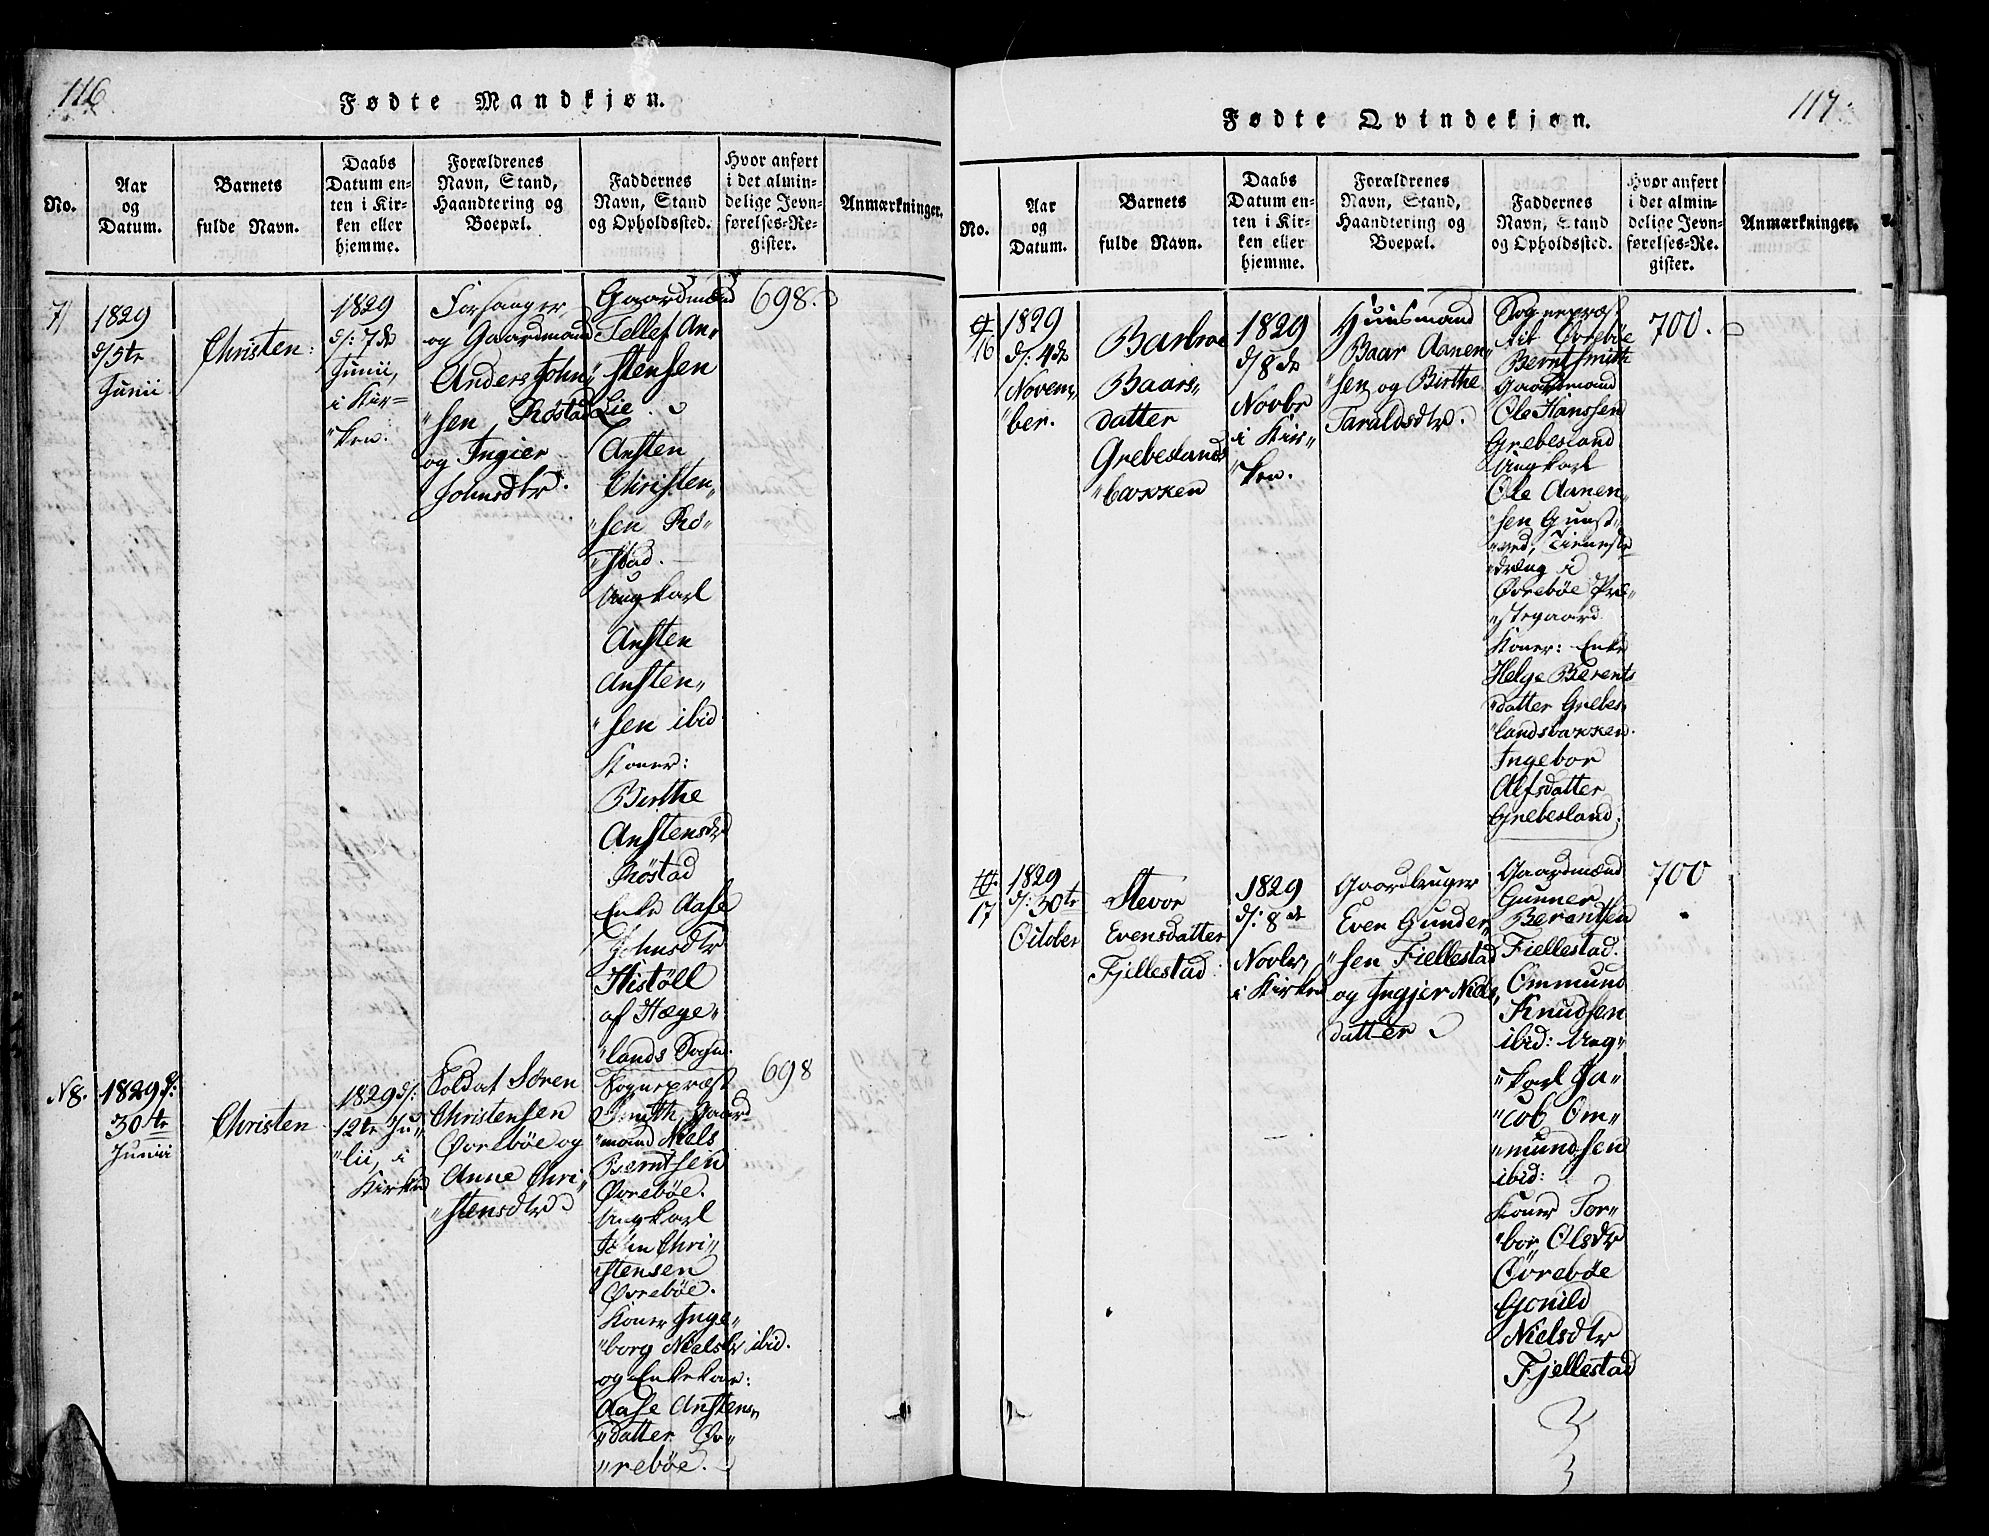 116
Fødte Mandkjøn.
No.
Aar
og
Datum.
Barnets
fulde Navn.
Daabs
Datum en-
ten i Kir-
ken eller
hjemme.
Forældrenes
Navn, Stand,
Haandtering og
Boepæl.
Faddernes
Navn, Stand
og Opholdssted.
Hvor anført
i det almin-
delige Jevn-
førelses-Re-
gister.
Anmærkninger.
7/
1829
d/5te
Junii.
Christen.
1829
d/: 7de
Junii,
i Kir=
"ken.
Forsanger
og Gaardmand
Anders John"
"sen Røstad
og Ingier
Johnsdtr.
Gaardmænd
Tellef An"
"stensen
Lie.
Ansten
Christen"
"sen Rø"
"stad.
Ungkarl
Ansten
Ansten"
"sen ibid
Koner:
Birthe
Anstensdtr
Røstad
Enke Aase
Johnsdtr
Histöll
af Hæge"
"lands Sogn.
698.
N8.
1829 d:
30te
Junii
Christen
1829 d/:
12te Ju"
"lii, i
Kirken
Soldat Sören
Christensen
Øvrebøe og
Anne Chri"
"stensdtr
Sognepræst
Smith, Gaard
"mand Niels
Berntsen
Øvrebøe.
Ungkarl
John Chri"
"stensen
Øvrebøe.
Koner Inge"
"borg Nielsdtr ibid.
og Enkekone:
Aase Anstens"
"datter Øv"
"rebøe.
698
117.
Fødte Qvindekjøn.
No.
Aar
og
Datum.
Barnets
fulde Navn.
Daabs
Datum en-
ten i Kir-
ken eller
hjemme.
Forældrenes
Navn, Stand,
Haandtering og
Boepæl.
Faddernes
Navn, Stand
og Opholdssted.
Hvor anført
i det almin-
delige Jevn-
førelses-Re-
gister.
Anmærkninger.
16
1829
d/: 4de
Novem"
"ber.
Barbroe
Baars"
datter
Grebeslands
"bakken
1829
d/8de
Novbr
i Kir"
"ken.
Huusmand
Baar Aanen"
"sen og Birthe
Taraldsdtr.
Sognepræst
til Øvrebøe
Bernt Smith
Gaardmand
Ole Hanssen
Grebesland
Ungkarl
Ole Aanen"
"sen Gunst"
"ved, Tieneste
"dræng i
Øvrebøe Præ"
"stegaard.
Koner: Enke
Helge Berents
"datter Grebes"
"landsbakken.
Ingebor
Alfsdatter
Grebesland.
700.
17
1829
d/: 30te
October
Stevor
Evensdatter
Fjellestad.
1829
d/: 8de
Novbr,
i Kirken
Gaardbruger
Even Gunder"
"sen Fiellestad
og Ingjer Niels"
datter
Gaardmænd
Gunner
Berentsen
Fiellestad.
Ommund
Knudsen
ibid: Ung"
"karl Ja"
"cob Om"
"mundsen
ibid:
Koner Tor"
"bor Olsdtr
Øvrebøe
Gonild
Nielsdtr
Fjellestad
700